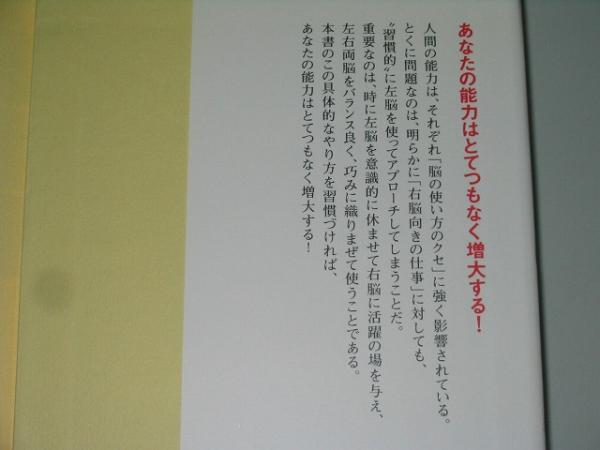 あなたの能力はとてつもなく増大する!
人間の能力は、それぞれ「脳の使い方のクセ」に強く影響されている。
とくに問題なのは、明らかに「右脳向きの仕事」に対しても、
〝習慣的〟に左脳を使ってアプローチしてしまうことだ。
重要なのは、時に左脳を意識的に休ませて右脳に活躍の場を与え、
左右両脳をバランス良く、巧みに織りまぜて使うことである。
本書のこの具体的なやり方を習慣づければ、
あなたの能力はとてつもなく増大する!